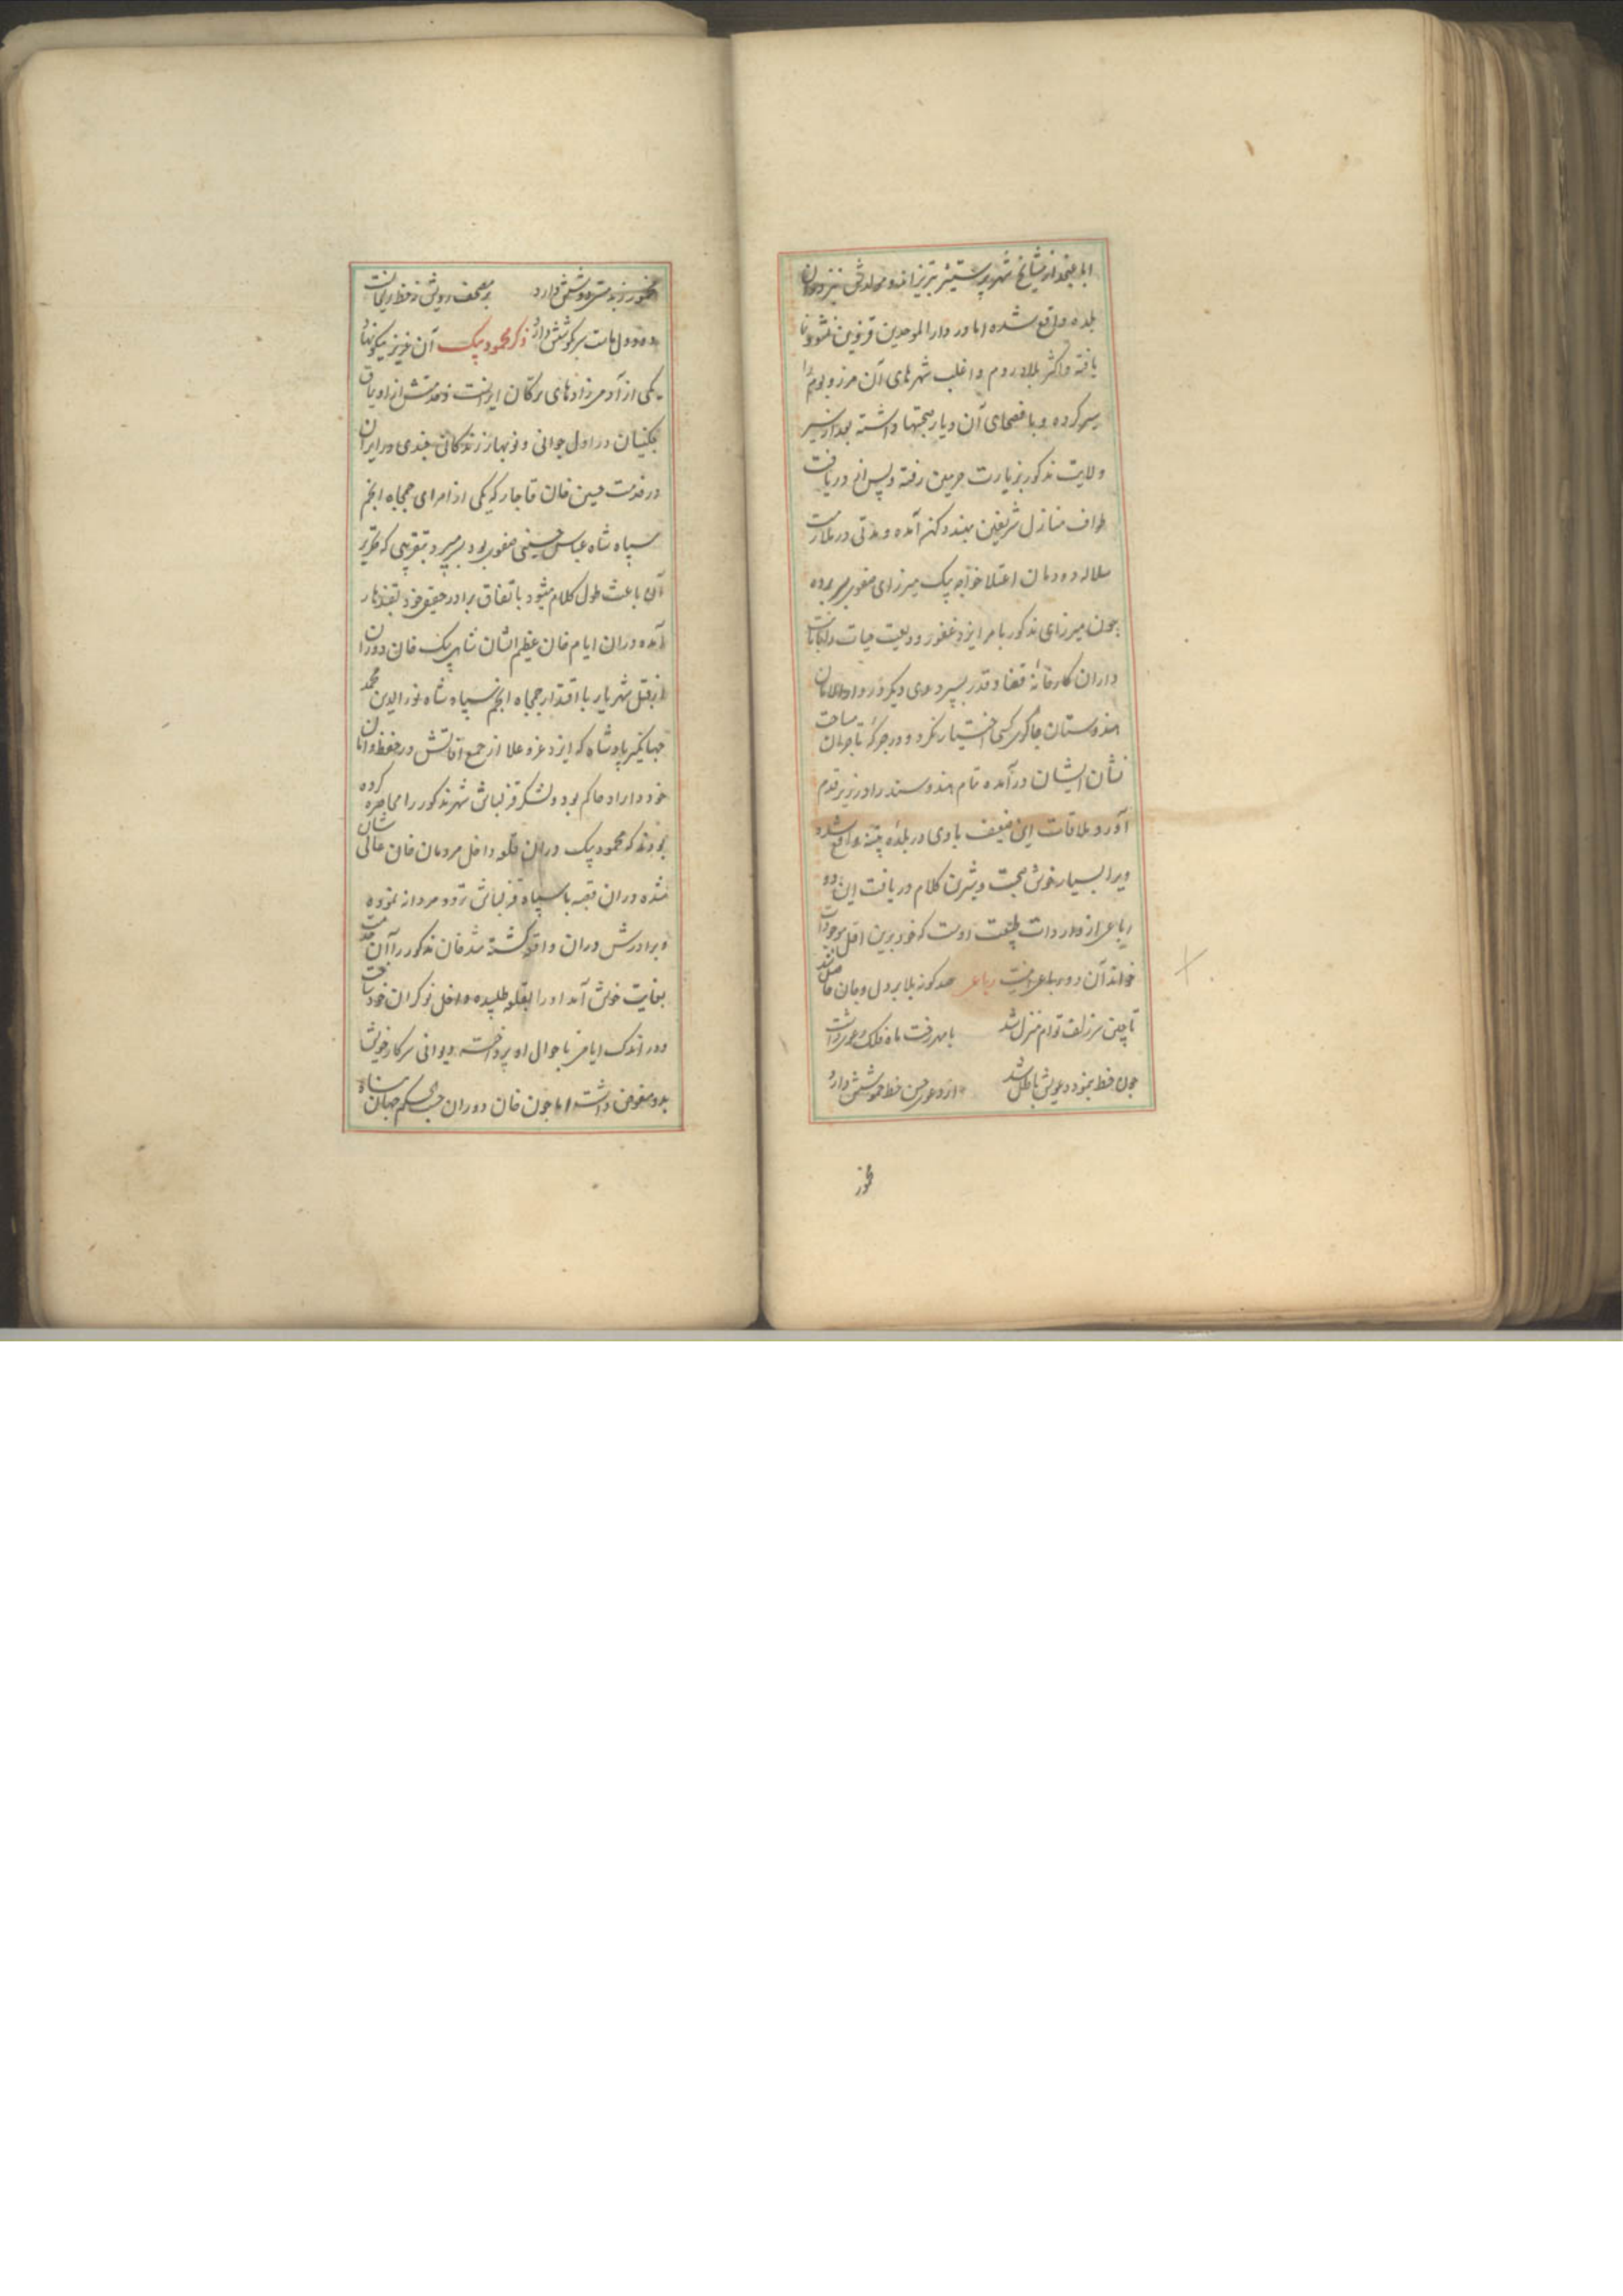 یافته و اکثر بلاد روم و اغلب شهرهای آن مرز و بوم را
سیر کرده و با فصحای آن دیار صحبتها داشته بعد از سیر
ولایت مذکور بزیارت حرمین رفته و پس از دریافت
طواف منازل شریفین بهند دکن آمده و مدتی در ملازمت
سلاله دودمان اعتلا خواجه بیک میرزای صفوی بسر برده
چون میرزای مذکور بامر ایزد غفور ودیعت حیات را بامانت
داران کارخانهٔ قضا و قدر سپرد وی دیگر در دارالامان
هندوستان چاکری کسی اختیار نکرد و در جرگهٔ تاجران سیاحت
نشان ایشان درآمده تمام هند و سند را در زیر قدم
آورد ملاقات این ضعیف باوی در بلدهٔ پتنه واقع شده
ویرا بسیار خوش صحبت و شیرین کلام دریافت این دو
رباعی از واردات طبیعت اوست که خود برین اقل موجودات
خواند آن دو رباعی اینست رباعی صد کوه بلا بر دل و جان حاصل شد
تا چین سر زلف توام منزل شد با مهر رخت ماه فلک دعوی داشت
چون خط بنمود دعویش باطل شد
ذکر محمود بیک آن عزیز نیکونهاد
یکی از آدمی‌زادهای ترکان ایرانست
در اول جوانی و نوبهار زندگانی چندی در ایران
در خدمت حسین خان قاجار که یکی از امرای جمجاه انجم
سپاه شاه عباس حسینی صفوی بود بسر میبرد بتقریبی که تحریر
آن باعث طول کلام میشود باتفاق برادر حقیقی خود بقندهار
آمده دران ایام خان عظیم الشان شاه بیک خان دوران
از قبل شهریار با اقتدار جمجاه انجم سپاه شاه نورالدین محمد
جهانگیر پادشاه که ایزد عز و علا از جمع آفاتش در حفظ و امان
خود داراد حاکم بود و لشکر قزلباش شهر مذکور را محاصره کرده
بودند که محمود بیک دران قلعه داخل مردمان خان عالی شان
شده دران قبه با سپاه قزلباش تردد مردانه نموده
و برادرش دران واقعه کشته شد خان مذکور را آن خدمت
بغایت خوش آمد او را بقلعه طلبیده داخل نوکران خود ساخت
و در اندک ایامی باحوال او پرداخته دیوانی سرکار خویش
بدو مفوض داشته اما چون خان دوران حسب الحکم جهان پناه